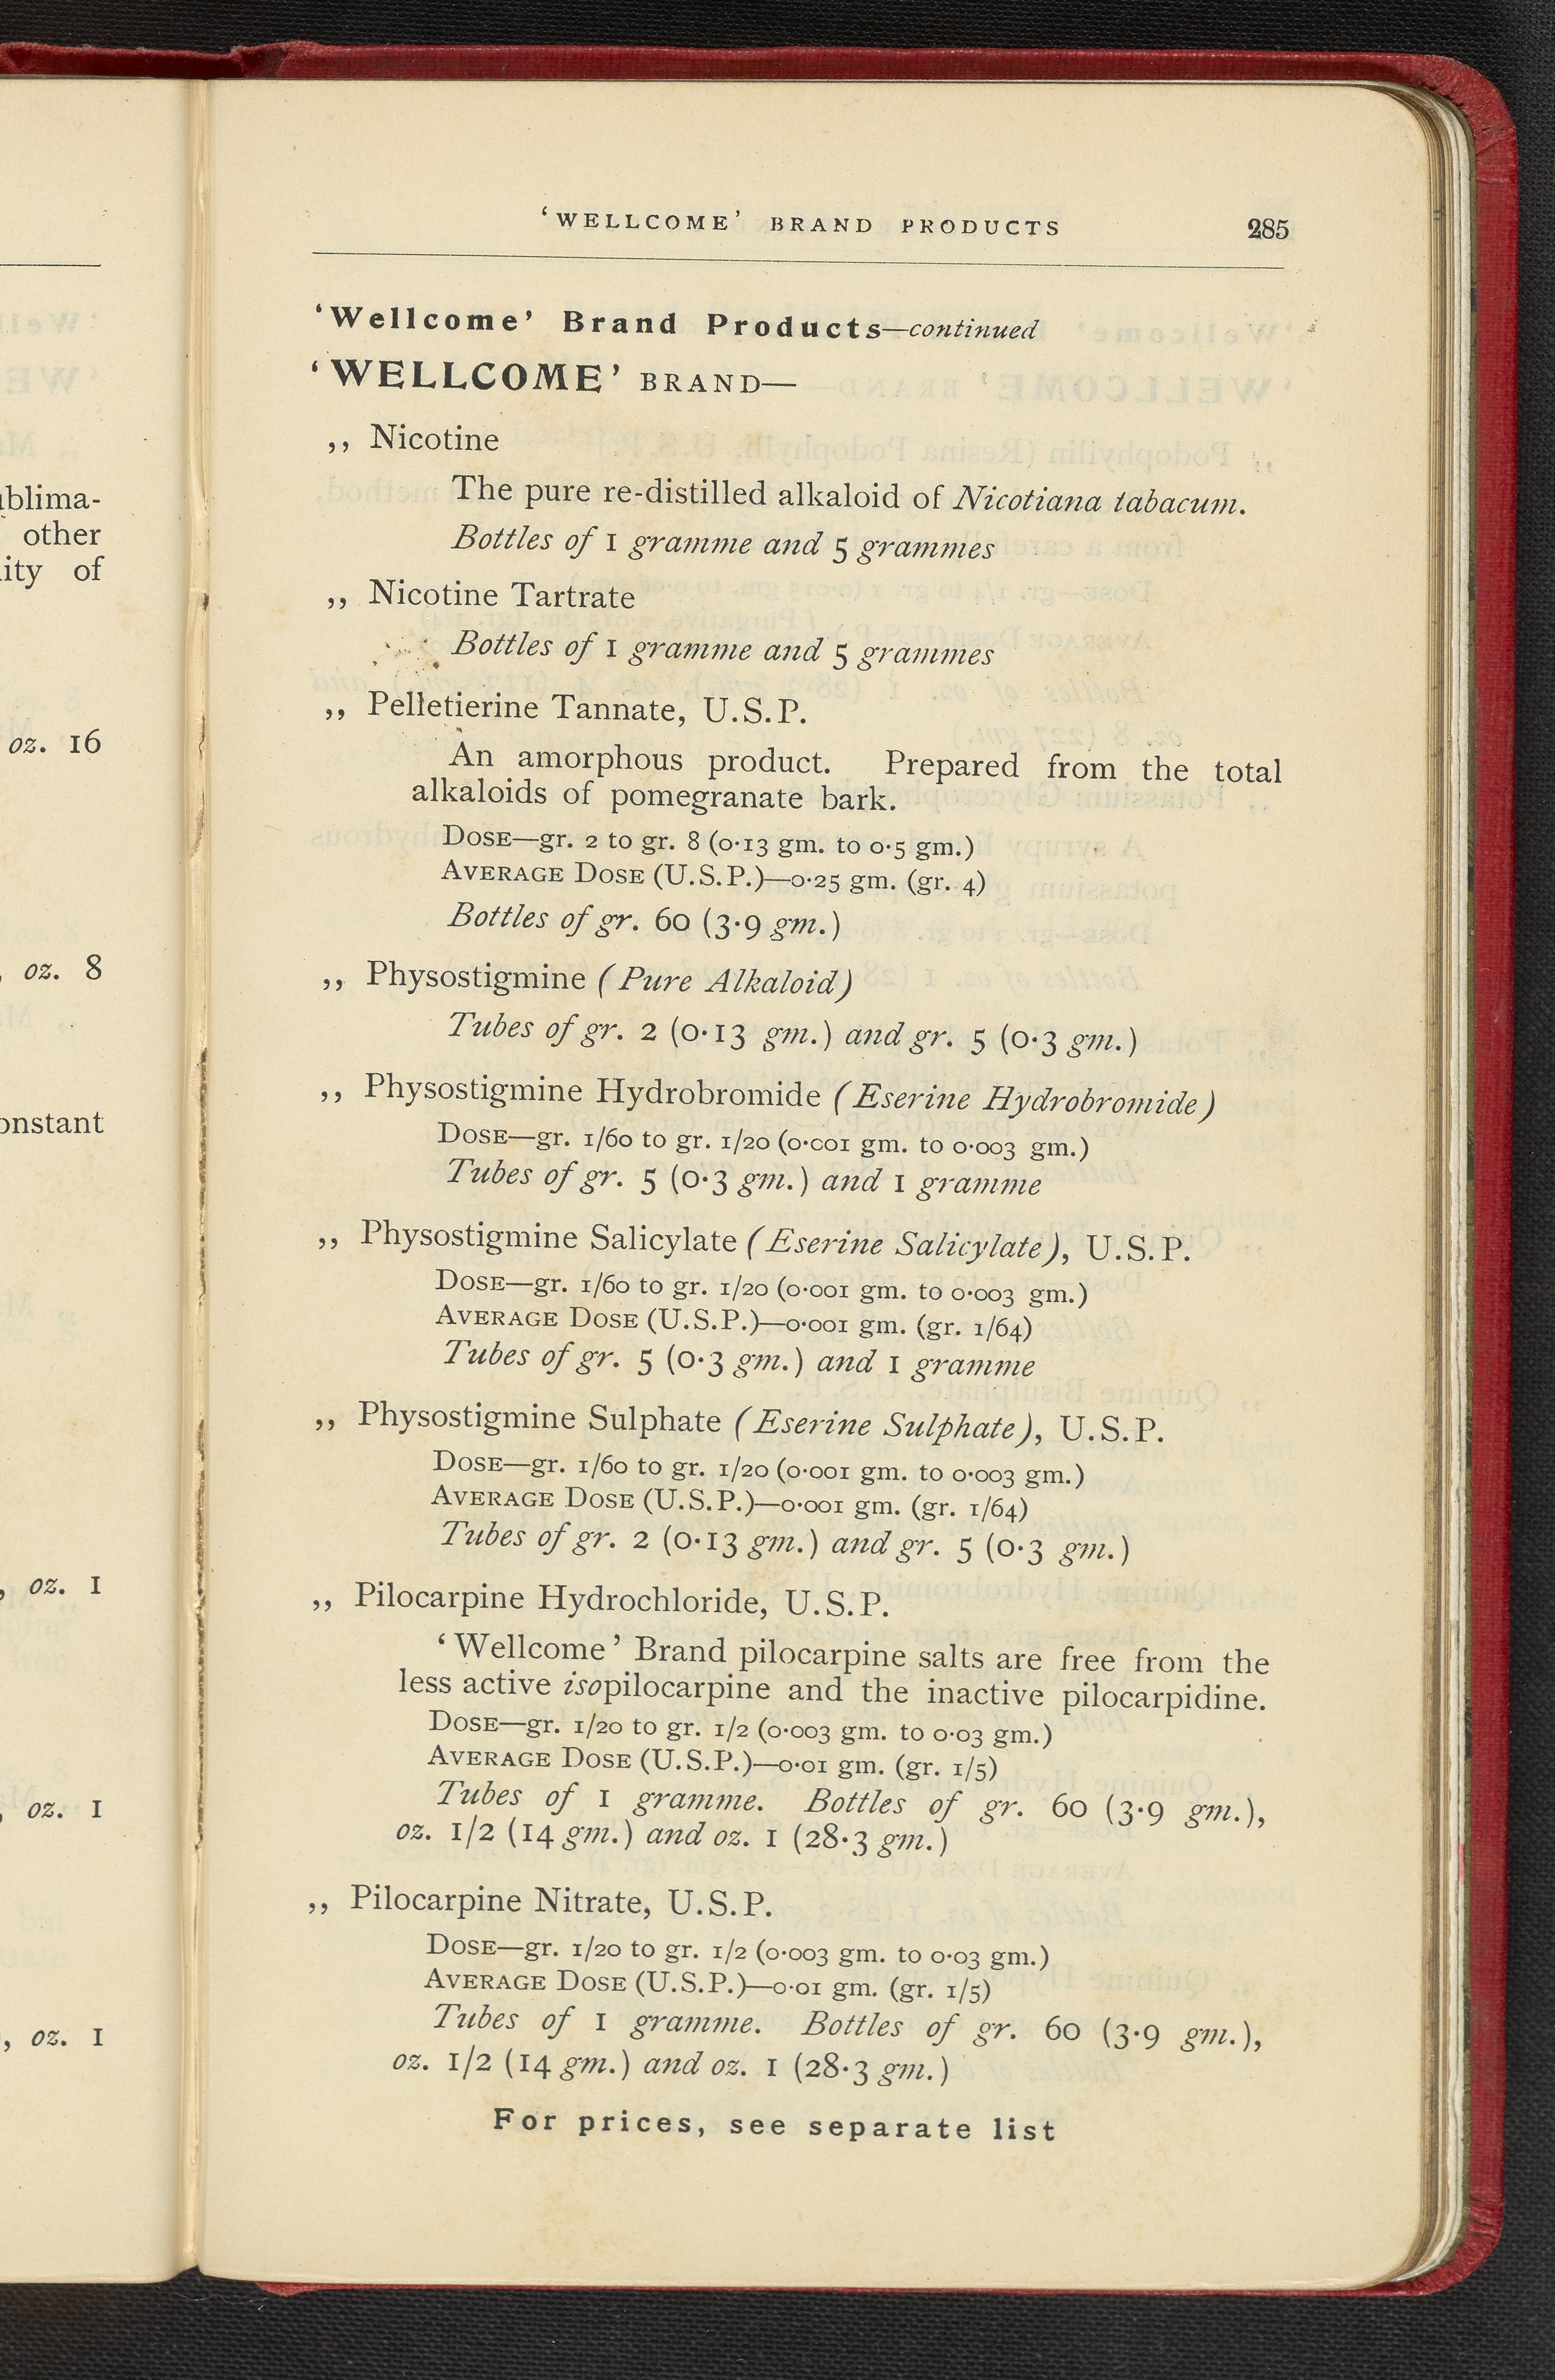 ‘WELLCOME’ BRAND PRODUCTS 285
‘Wellcome’ Brand Products—continued
‘WELLCOME’ BRAND—
,, Nicotine
The pure re-distilled alkaloid of Nicotiana tabacum.
Bottles of 1 gramme and 5 grammes
,, Nicotine Tartrate
Bottles of 1 gramme and 5 grammes
,, Pelletierine Tannate, U.S.P.
An amorphous product. Prepared from the total
alkaloids of pomegranate bark.
DOSE—gr. 2 to gr. 8 (0·13 gm. to 0·5 gm.)
AVERAGE DOSE (U.S.P.)—0·25 gm. (gr. 4)
Bottles of gr. 60 (3·9 gm.)
,, Physostigmine (Pure Alkaloid)
Tubes of gr. 2 (0·13 gm.) and gr. 5 (0·3 gm.)
,, Physostigmine Hydrobromide (Eserine Hydrobromide)
DOSE—gr. 1/60 to gr. 1/20 (0·001 gm. to 0·003 gm.)
Tubes of gr. 5 (0·3 gm.) and 1 gramme
,, Physostigmine Salicylate (Eserine Salicylate), U.S.P.
DOSE—gr. 1/60 to gr. 1/20 (0·001 gm. to 0·003 gm.)
AVERAGE DOSE (U.S.P.)—0·001 gm. (gr. 1/64)
Tubes of gr. 5 (0·3 gm.) and 1 gramme
,, Physostigmine Sulphate (Eserine Sulphate), U.S.P.
DOSE—gr. 1/60 to gr. 1/20 (0·001 gm. to 0·003 gm.)
AVERAGE DOSE (U.S.P.)—0·001 gm. (gr. 1/64)
Tubes of gr. 2 (0·13 gm.) and gr. 5 (0·3 gm.)
,, Pilocarpine Hydrochloride, U.S.P.
‘Wellcome’ Brand pilocarpine salts are free from the
less active isopilocarpine and the inactive pilocarpidine.
DOSE—gr. 1/20 to gr. 1/2 (0·003 gm. to 0·03 gm.)
AVERAGE DOSE (U.S.P.)—0·01 gm. (gr. 1/5)
Tubes of 1 gramme. Bottles of gr. 60 (3·9 gm.),
oz. 1/2 (14 gm.) and oz. 1 (28·3 gm.)
,, Pilocarpine Nitrate, U.S.P.
DOSE—gr. 1/20 to gr. 1/2 (0·003 gm. to 0·03 gm.)
AVERAGE DOSE (U.S.P.)—0·01 gm. (gr. 1/5)
Tubes of 1 gramme. Bottles of gr. 60 (3·9 gm.),
oz. 1/2 (14 gm.) and oz. 1 (28·3 gm.)
For prices, see separate list
other
of
oz. 16
oz. 8
oz. 1
oz. 1
oz. 1